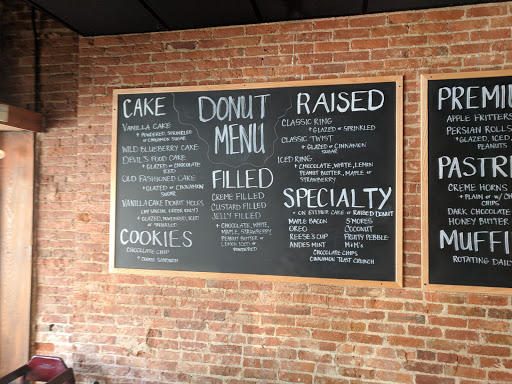 DONUT
MENU
CAKE
VANILLA CAKE
+ POWDERED, SPRINKLED
OR CINNAMON
SUGAR
WILD BLUEBERRY CAKE
DEVIL'S FOOD CAKE
+ GLAZED OR CHOCOLATE
ICED
OLD FASHIONED CAKE
+ GLAZED OR CINNAMON
SUGAR
VANILLA CAKE DONUT HOLES
(BY SPECIAL ORDER ONLY)
+ GLAZED, POWDERED, ICED
OR SPRINKLED
COOKIES
CHOCOLATE CHIP
+ COOKIE SANDWICH
FILLED
CREME FILLED
CUSTARD FILLED
JELLY FILLED
+ CHOCOLATE, WHITE,
MAPLE, STRAWBERRY
PEANUT BUTTER OR
LEMON ICED OR
POWDERED
RAISED
CLASSIC RING
+ GLAZED OR SPRINKLED
CLASSIC TWIST
+ GLAZED OR CINNAMON
SUGAR
ICED RING
+ CHOCOLATE, WHITE, LEMON
PEANUT BUTTER, MAPLE OR
STRAWBERRY
SPECIALTY
+ ON EITHER CAKE OR RAISED DONUT
MAPLE BACON S'MORES
OREO COCONUT
REESE'S CUP FRUITY PEBBLE
ANDES MINT M+M'S
CHOCOLATE CHIPS
CINNAMON TOAST CRUNCH
PREMIU
APPLE FRITTERS
PERSIAN ROLLS
+ GLAZED, ICED,
PEANUTS
PASTRI
CREME HORNS
+ PLAIN OR W/ CH
CHIPS
DARK CHOCOLATE
HONEY BUTTER
MUFFI
ROTATING DAILY